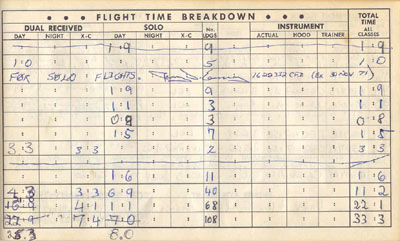 FLIGHT TIME BREAKDOWN
DUAL RECEIVED SOLO No. LDGS INSTRUMENT TOTAL TIME ALL CLASSES
DAY NIGHT X-C DAY NIGHT X-C ACTUAL HOOD TRAINER
1:9 9 1:9
1:0 5 1:0
FOR SOLO FLIGHTS.
1:9 9 1:9
1:1 3 1:1
0:8 3 0:8
1:5 7 1:5
3:3 3:3 2 3:3
1:6 11 1:6
4:3 3:3 6:9 40 11:2
4:1 1:1 68 22:1
7:4 7:0 108 33:3
8.0